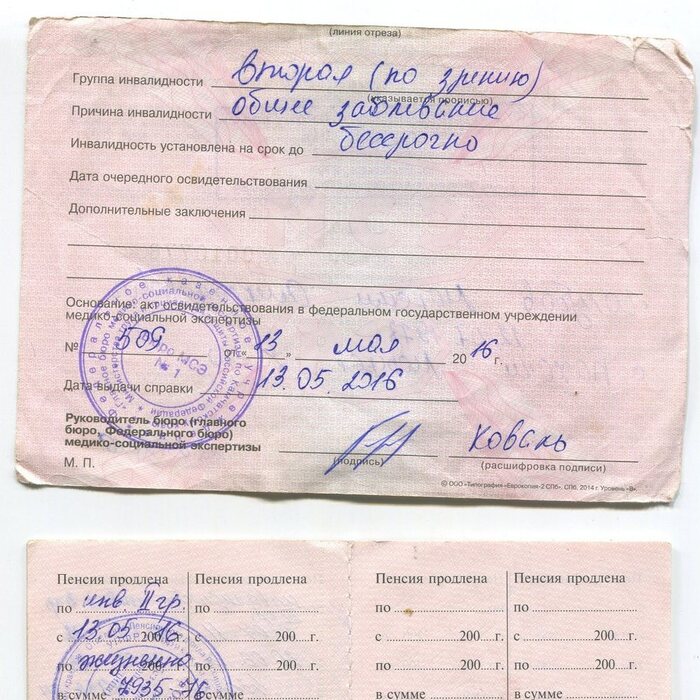 (линия отреза)
Группа инвалидности вторая (по зрению)
(указывается прописью)
Причина инвалидности общее заболевание
Инвалидность установлена на срок до бессрочно
Дата очередного освидетельствования
Дополнительные заключения
Основание: акт освидетельствования в федеральном государственном учреждении
медико-социальной экспертизы
№ 509 от « 13 » мая 20 16 г.
Дата выдачи справки 13.05.2016
Руководитель бюро (главного
бюро, Федерального бюро)
медико-социальной экспертизы Коваль
(подпись) (расшифровка подписи)
М. П.
© ООО «Типография «Еврокопия-2 СПб», СПб, 2014 г. Уровень «В».
бюро МСЭ
№ 1
Пенсия продлена Пенсия продлена Пенсия продлена Пенсия продлена
по инв. II гр. по по по
с 13.05 200 16 с 200 г. с 200 г. с 200 г.
по пожизненно по 200 г. по 200 г. по 200 г.
в сумме 7935 в сумме в сумме в сумме